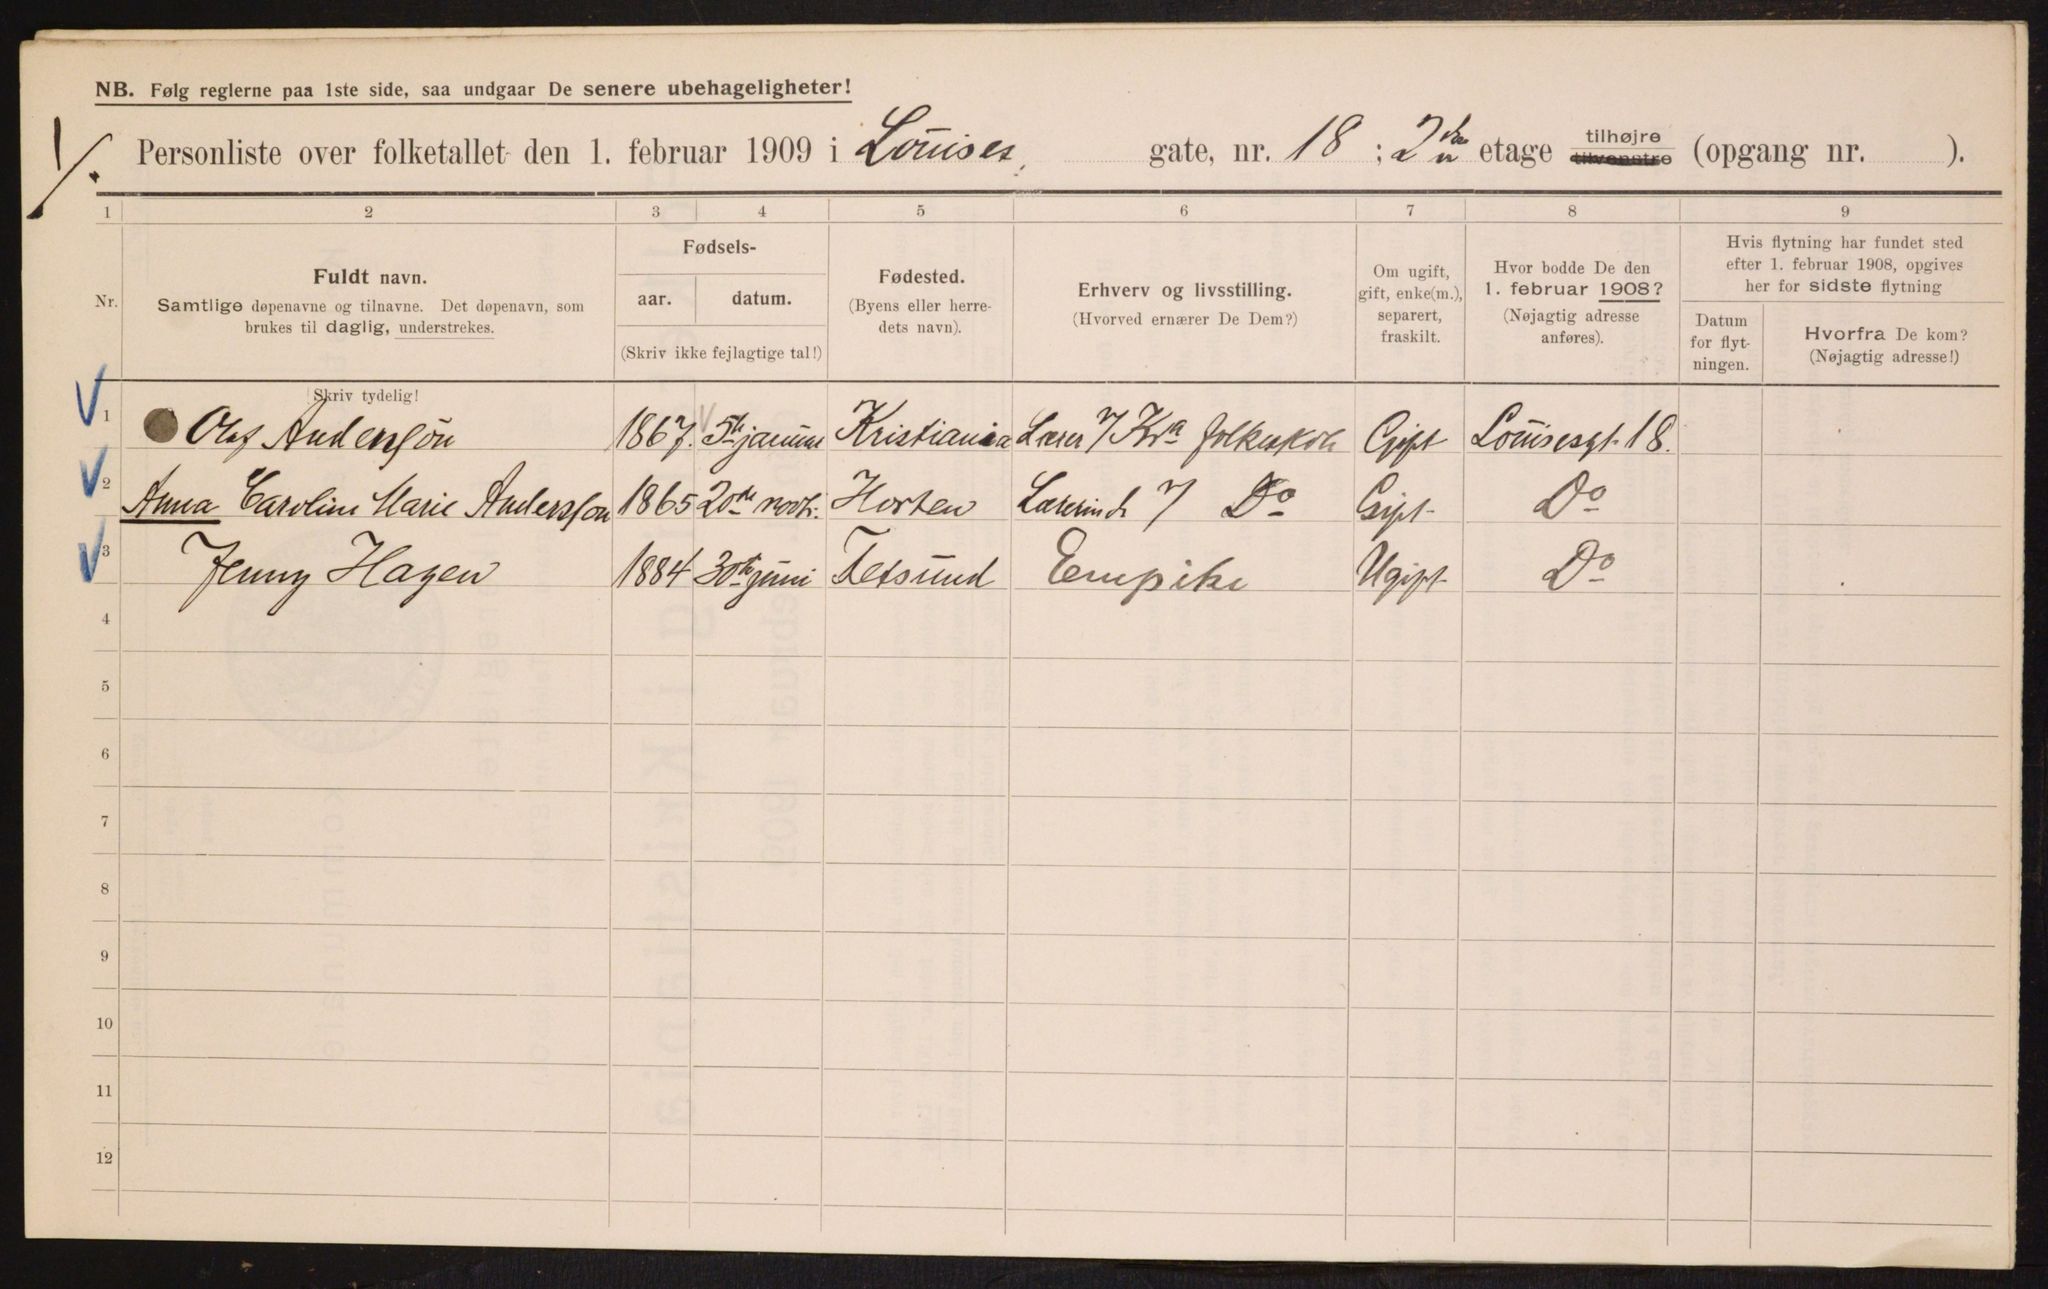 NB. Følg reglerne paa 1ste side, saa undgaar De senere ubehageligheter!
1/.
Personliste over folketallet den 1. februar 1909 i Louises gate, nr. 18 ; 2den etage tilhøjre tilvenstre (opgang nr. ).
1 2 3 4 5 6 7 8 9
Nr.
Fuldt navn.
Samtlige døpenavne og tilnavne. Det døpenavn, som
brukes til daglig, understrekes.
Skriv tydelig!
Fødsels-
aar. datum.
(Skriv ikke fejlagtige tal!)
Fødested.
(Byens eller herre-
dets navn).
Erhverv og livsstilling.
(Hvorved ernærer De Dem?)
Om ugift,
gift, enke(m.),
separert,
fraskilt.
Hvor bodde De den
1. februar 1908?
(Nøjagtig adresse
anføres).
Hvis flytning har fundet sted
efter 1. februar 1908, opgives
her for sidste flytning
Datum
for flyt-
ningen.
Hvorfra De kom?
(Nøjagtig adresse!)
1 Olaf Andersson 1867. 5te januar Kristiania Lærer v/ Kra folkeskole Gift Louisesgt. 18.
2 Anna Caroline Marie Andersson 1865 20de novb. Horten Lærerinde v/ Do Gift Do
3 Jenny Hagen 1884 30te juni Fetsund Enepike Ugift Do
4
5
6
7
8
9
10
11
12